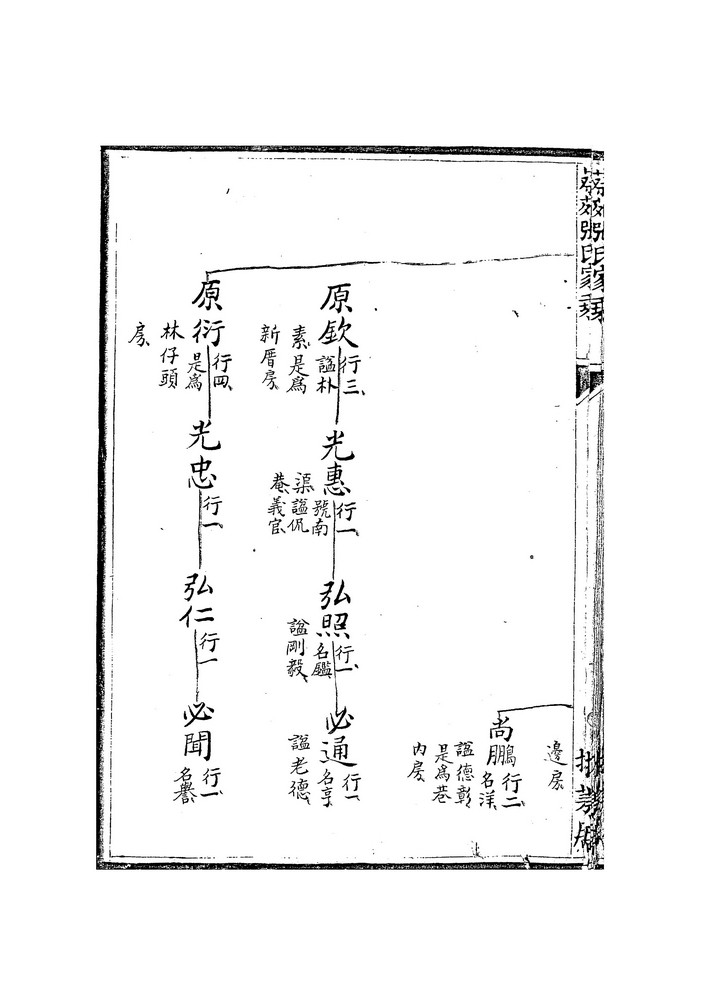 邊房
尚鵬行二
名洋
諡德彰
是爲巷
內房
原欽行三
諡朴
素是爲
新厝房
光惠行一
號南
渠諡侃
菴義官
弘照行一
名鑑
諡剛毅
必通行一
名亨
諡老德
原衍行四
是爲
林仔頭
房
光忠行一
弘仁行一
必聞行一
名譽